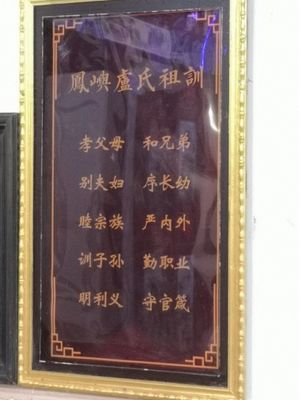 鳳嶼盧氏祖訓
孝父母 和兄弟
别夫妇 序长幼
睦宗族 严内外
训子孙 勤职业
明利义 守官箴